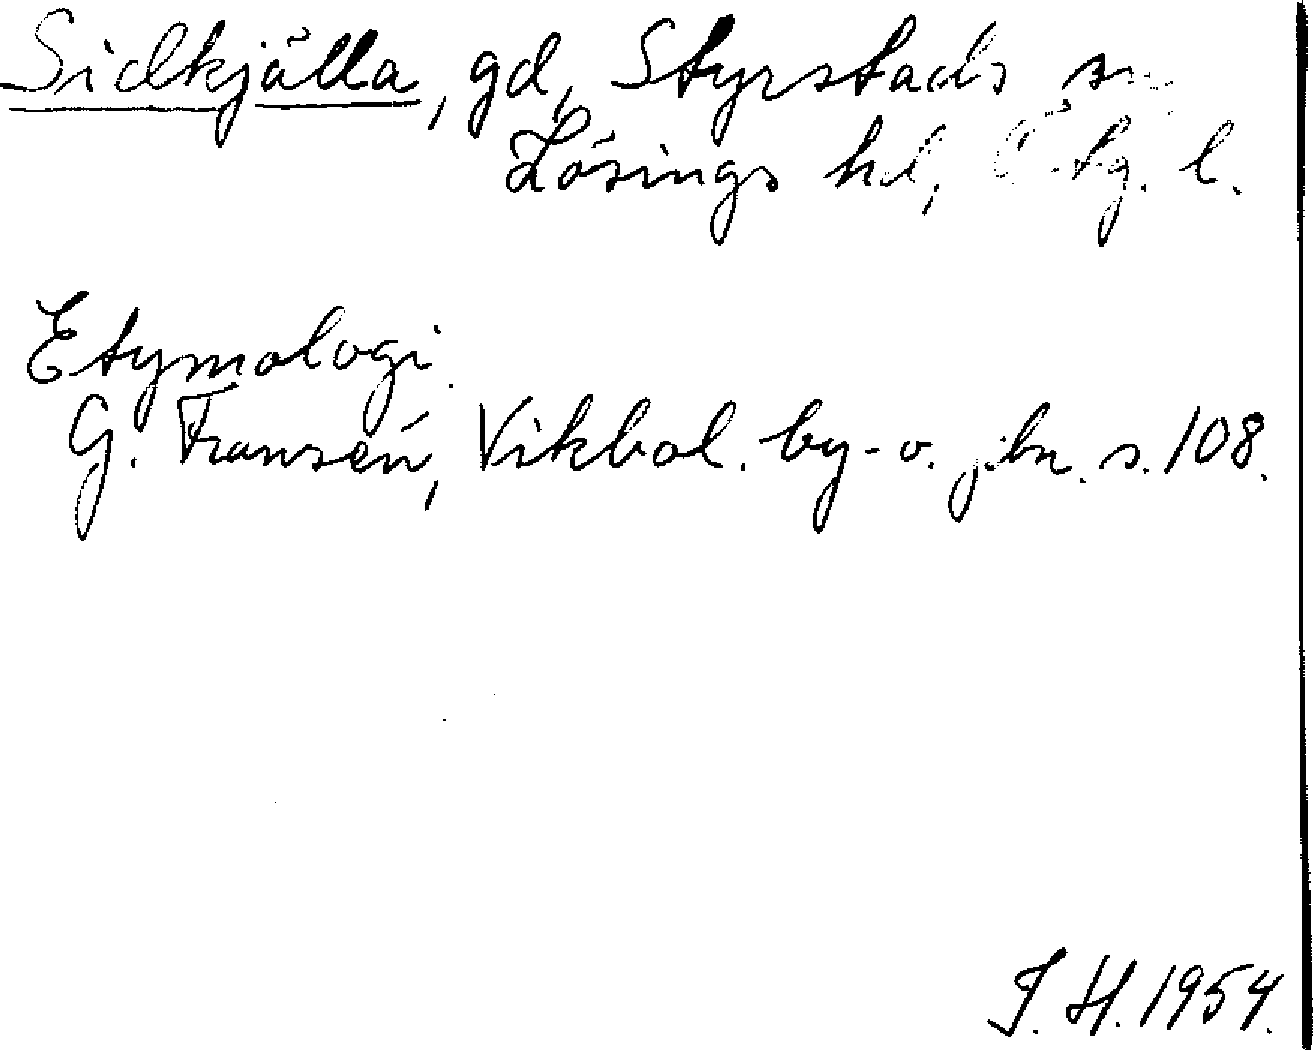 Sidkjälla, gd, Styrstads sn
Lösings hd, Östg. l.
Etymologi.
G. Franzén, Vikbol. by- o. gdn. s. 108.
J. H. 1954.